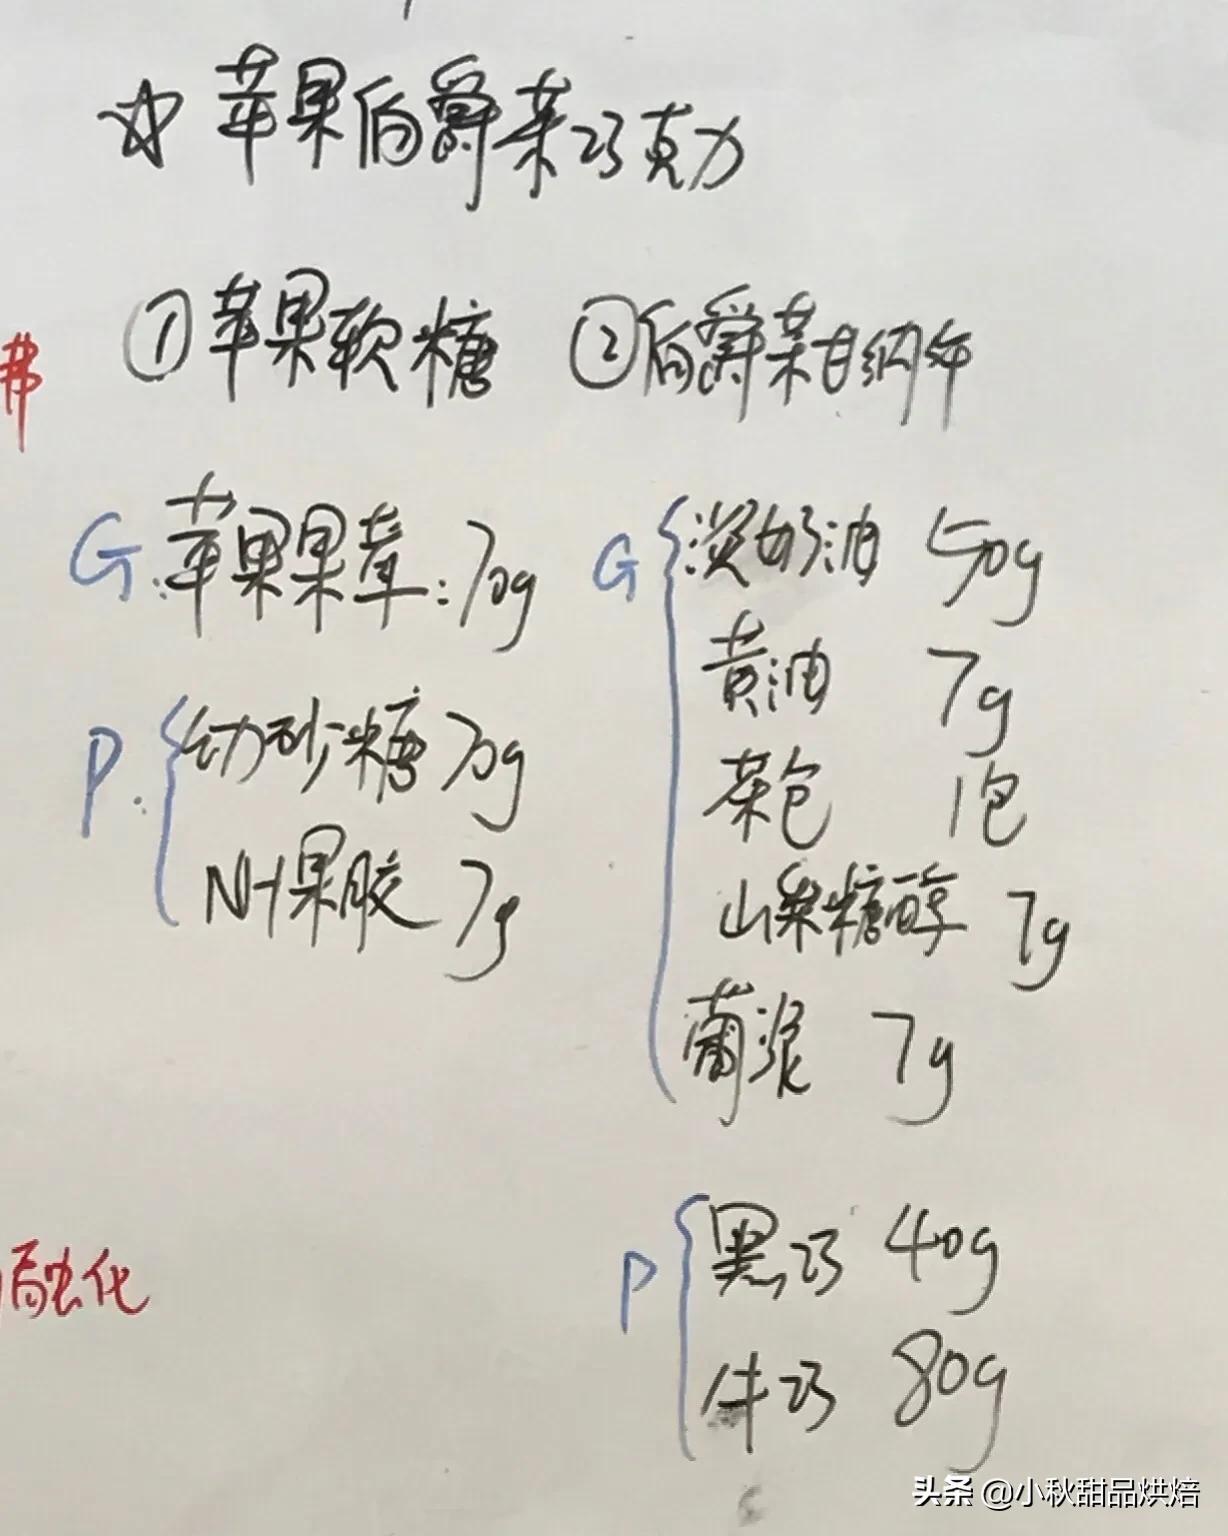 ☆ 苹果伯爵茶巧克力
①苹果软糖
②伯爵茶甘纳许
沸
G:苹果果茸:70g
P:
幼砂糖 70g
NH果胶 7g
G
淡奶油 50g
黄油 7g
茶包 1包
山梨糖醇 7g
葡浆 7g
融化
P
黑巧 40g
牛巧 80g
头条 @小秋甜品烘焙